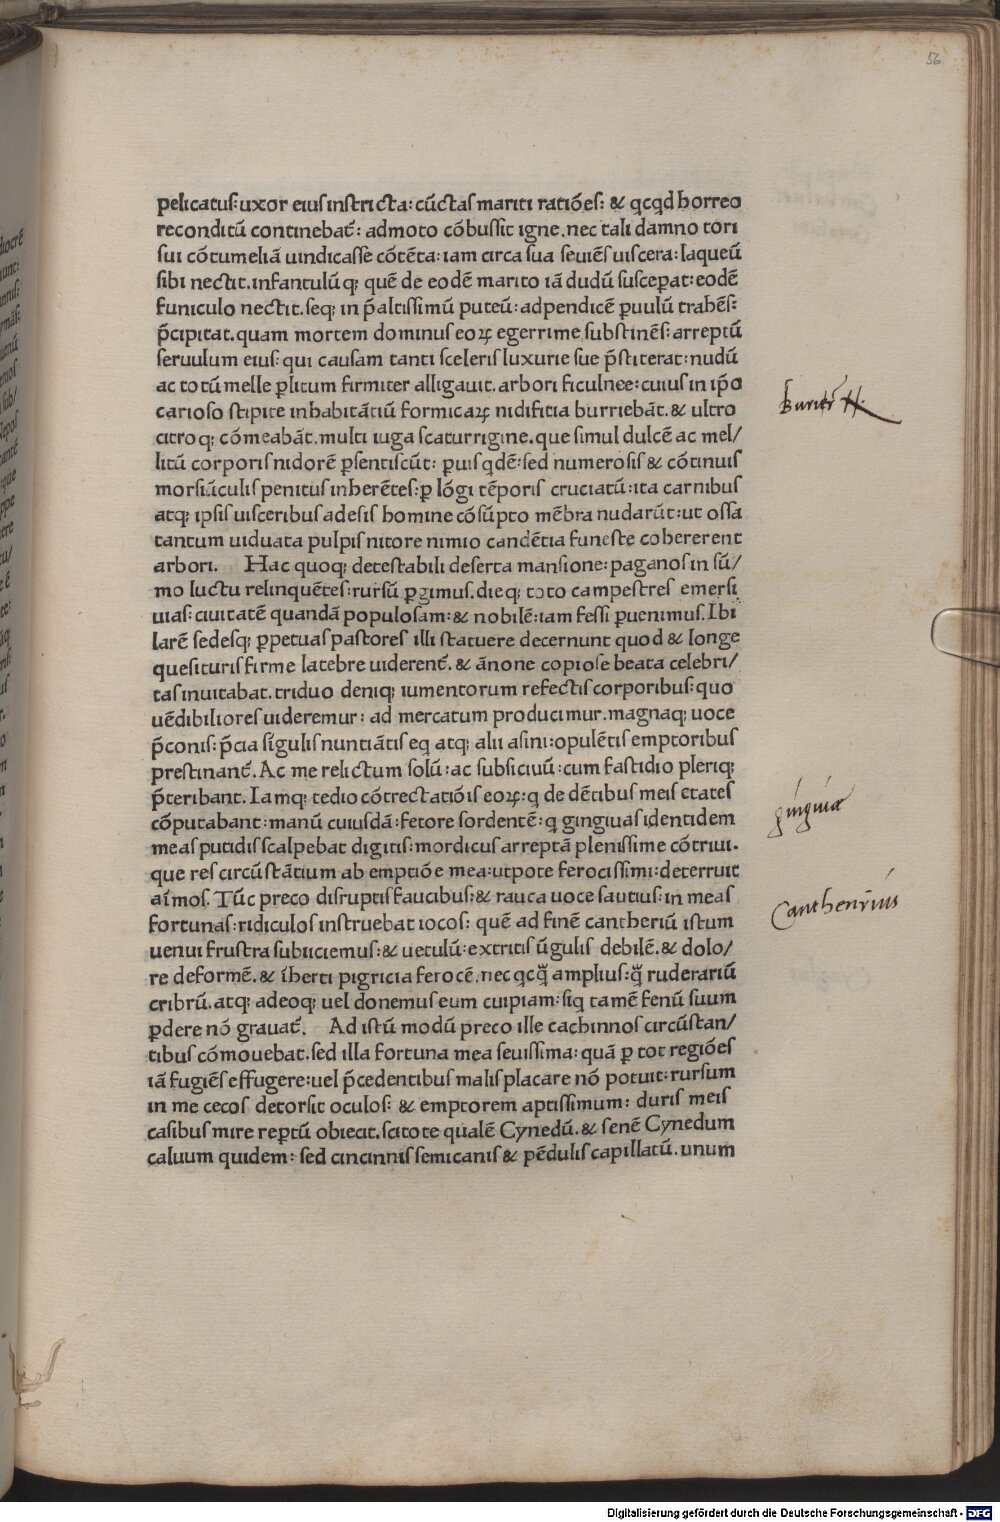 56
pelicatus: uxor eius instricta: cūctas mariti ratiōes: & qcqd horreo
reconditū continebat᷑: admoto cōbussit igne. nec tali damno tori
sui cōtumeliā uindicasse cōtēta: iam circa sua seuiēs uiscera: laqueū
sibi nectit. infantulūq; quē de eodē marito iā dudū susceꝑat: eodē
funiculo nectit. seq; in p̄altissimū puteū: adpendicē ꝑuulū trahēs:
p̄cipitat. quam mortem dominus eoꝝ egerrime substinēs: arreptū
seruulum eius: qui causam tanti sceleris luxurie sue p̄stiterat: nudū
ac totū melle ꝑlitum firmiter alligauit. arbori ficulnee: cuius in ip̄o
carioso stipite inhabitātiū formicaꝝ nidifitia burriebāt. & ultro
citroq; cōmeabāt. multi iuga scaturrigine. que simul dulcē ac mel/
litū corporis nidorē ꝑsentiscūt: ꝑuis qdē: sed numerosis & cōtinuis
morsiūculis penitus inherētes: ꝑ lōgi tēporis cruciatū: ita carnibus
atq; ipsis uisceribus adesis homine cōsūpto mēbra nudarūt: ut ossa
tantum uiduata pulpis nitore nimio candētia funeste cohererent
arbori. Hac quoq; detestabili deserta mansione: paganos in sū/
mo luctu relinquētes: rursū ꝑgimus. dieq; toto campestres emersi
uias: ciuitatē quandā populosam: & nobilē: iam fessi ꝑuenimus. Ibi
larē sedesq; ꝑpetuas pastores illi statuere decernunt quod & longe
quesituris firme latebre uiderent᷑. & ānone copiose beata celebri/
tas inuitabat. triduo deniq; iumentorum refectis corporibus: quo
uēdibiliores uideremur: ad mercatum producimur. magnaq; uoce
p̄conis: p̄cia sīgulis nuntiātis eq atq; alii asini: opulētis emptoribus
prestinant᷑. Ac me relictum solū: ac subsiciuū: cum fastidio pleriq;
p̄teribant. Iamq; tedio cōtrectatiōis eoꝝ: q de dētibus meis etates
cōputabant: manū cuiusdā: fetore sordentē: q gingiuas identidem
meas putidis scalpebat digitis: mordicus arreptā plenissime cōtriui.
que res circūstātium ab emptiōe mea: utpote ferocissimi: deterruit
aīmos. Tūc preco disruptis faucibus: & rauca uoce sautius: in meas
fortunas: ridiculos instruebat iocos: quē ad finē cantheriū istum
uenui frustra subiiciemus: & uetulū: extritis ūgulis debilē. & dolo/
re deformē. & īherti pigricia ferocē. nec qcq̄ amplius: q̄ ruderariū
cribrū. atq; adeoq; uel donemus eum cuipiam: siq tamē fenū suum
ꝑdere nō grauat᷑. Ad istū modū preco ille cachinnos circūstan/
tibus cōmouebat. sed illa fortuna mea seuissima: quā ꝑ tot regiōes
iā fugiēs effugere: uel p̄cedentibus malis placare nō potuit: rursum
in me cecos detorsit oculos: & emptorem aptissimum: duris meis
casibus mire reꝑtū obiecit. scitote qualē Cynedū. & senē Cynedum
caluum quidem: sed cincinnis semicanis & pēdulis capillatū. unum
gingiuæ
Cantherius
Digitalisierung gefördert durch die Deutsche Forschungsgemeinschaft - DFG